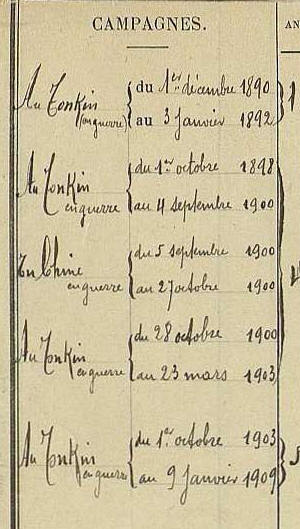 CAMPAGNES.
AN
Au Tonkin
(en guerre)
du 1er décembre 1890
au 3 Janvier 1892
1
Au Tonkin
en guerre
du 1er octobre 1898
au 4 septembre 1900
En Chine
en guerre
du 5 septembre 1900
au 27 octobre 1900
Au Tonkin
en guerre
du 28 octobre 1900
au 23 mars 1903
Au Tonkin
en guerre
du 1er octobre 1903
au 9 Janvier 1909